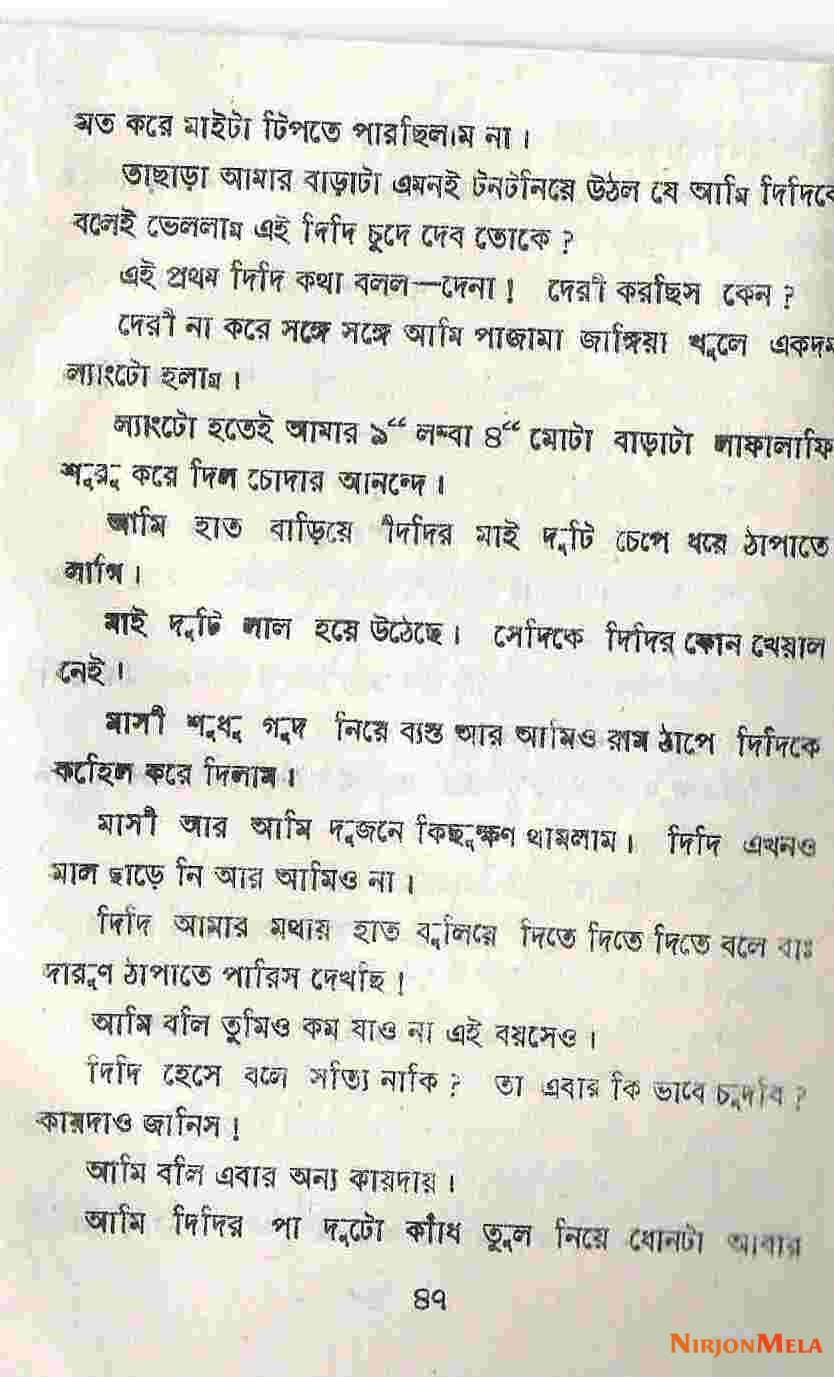 মত করে মাইটা টিপতে পারছিলাম না।
তাছাড়া আমার বাড়াটা এমনই টনটনিয়ে উঠল যে আমি দিদিকে
বলেই ভেললাম এই দিদি চুদে দেব তোকে?
এই প্রথম দিদি কথা বলল—দেনা! দেরী করছিস কেন?
দেরী না করে সঙ্গে সঙ্গে আমি পাজামা জাঙ্গিয়া খুলে একদম
ল্যাংটো হলাম।
ল্যাংটো হতেই আমার ৯“ লম্বা ৪“ মোটা বাড়াটা লাফালাফি
শুরু করে দিল চোদার আনন্দে।
আমি হাত বাড়িয়ে দিদির মাই দুটি চেপে ধরে ঠাপাতে
লাগি।
মাই দুটি লাল হয়ে উঠেছে। সেদিকে দিদির কোন খেয়াল
নেই।
মাসী শুধু গুদ নিয়ে ব্যস্ত আর আমিও রাম ঠাপে দিদিকে
করে দিলাম।
মাসী আর আমি দুজনে কিছুক্ষণ থামলাম। দিদি এখনও
মাল ছাড়ে নি আর আমিও না।
দিদি আমার মথায় হাত বুলিয়ে দিতে দিতে দিতে বলে বাঃ
দারুণ ঠাপাতে পারিস দেখছি!
আমি বলি তুমিও কম যাও না এই বয়সেও।
দিদি হেসে বলে সত্যি নাকি? তা এবার কি ভাবে চুদবি?
কায়দাও জানিস!
আমি বলি এবার অন্য কায়দায়।
আমি দিদির পা দুটো কাঁধে তুল নিয়ে ধোনটা আবার
৪৭
NIRJONMELA